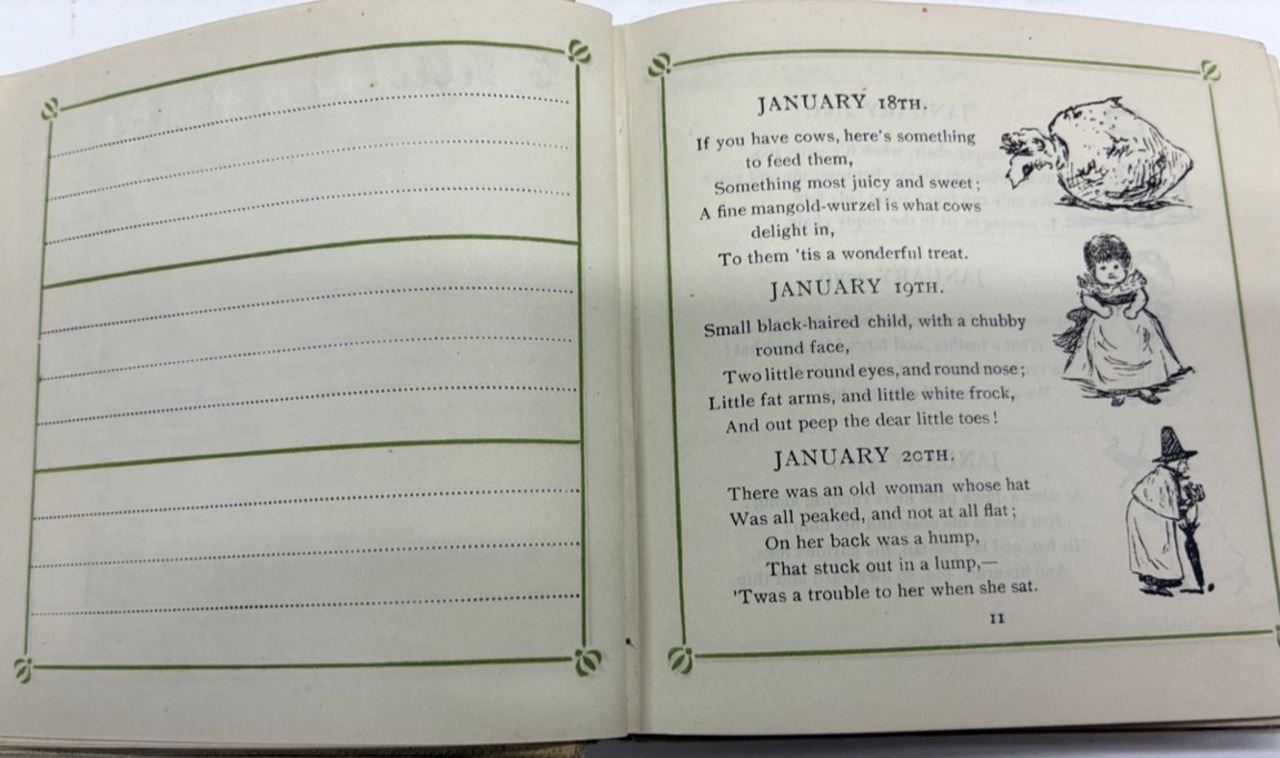 JANUARY 18TH.
If you have cows, here's something
to feed them,
Something most juicy and sweet;
A fine mangold-wurzel is what cows
delight in,
To them 'tis a wonderful treat.
JANUARY 19TH.
Small black-haired child, with a chubby
round face,
Two little round eyes, and round nose;
Little fat arms, and little white frock,
And out peep the dear little toes!
JANUARY 20TH.
There was an old woman whose hat
Was all peaked, and not at all flat;
On her back was a hump,
That stuck out in a lump,—
'Twas a trouble to her when she sat.
11